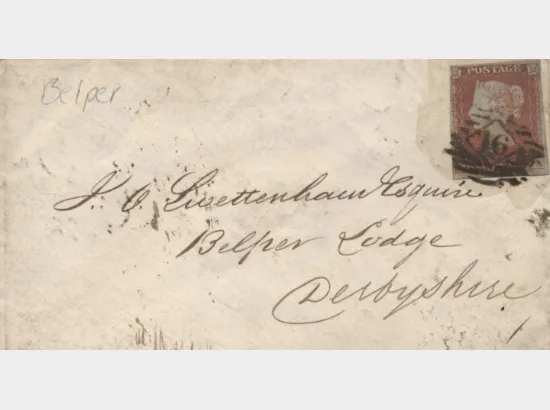 Belper
POSTAGE
16
J. O. Swettenham Esquire
Belper Lodge
Derbyshire